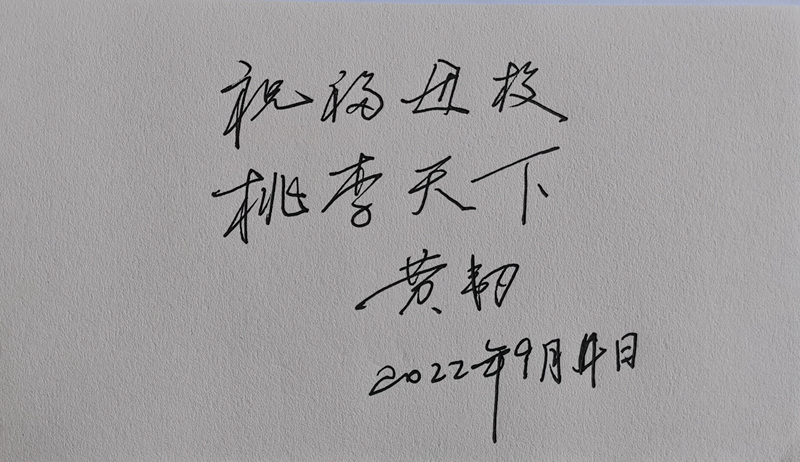 祝福母校
桃李天下
黄韧
2022年9月4日